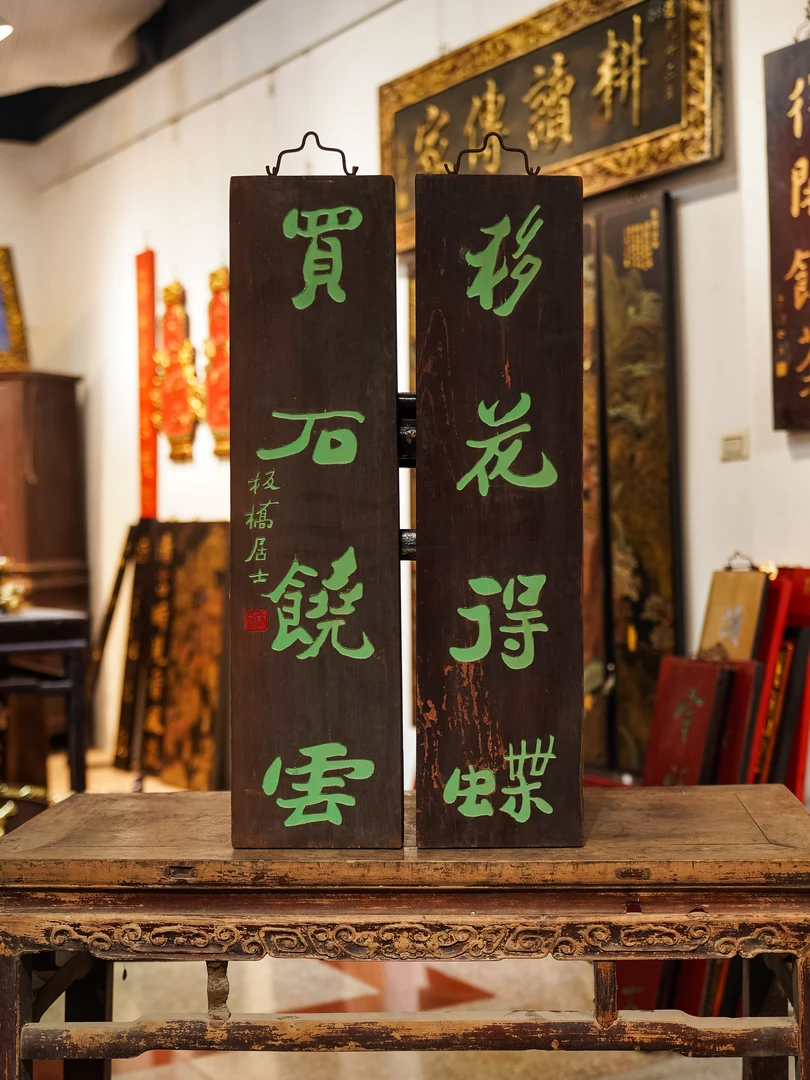 移花得蝶
買石饒雲
板橋居士
耕讀傳家